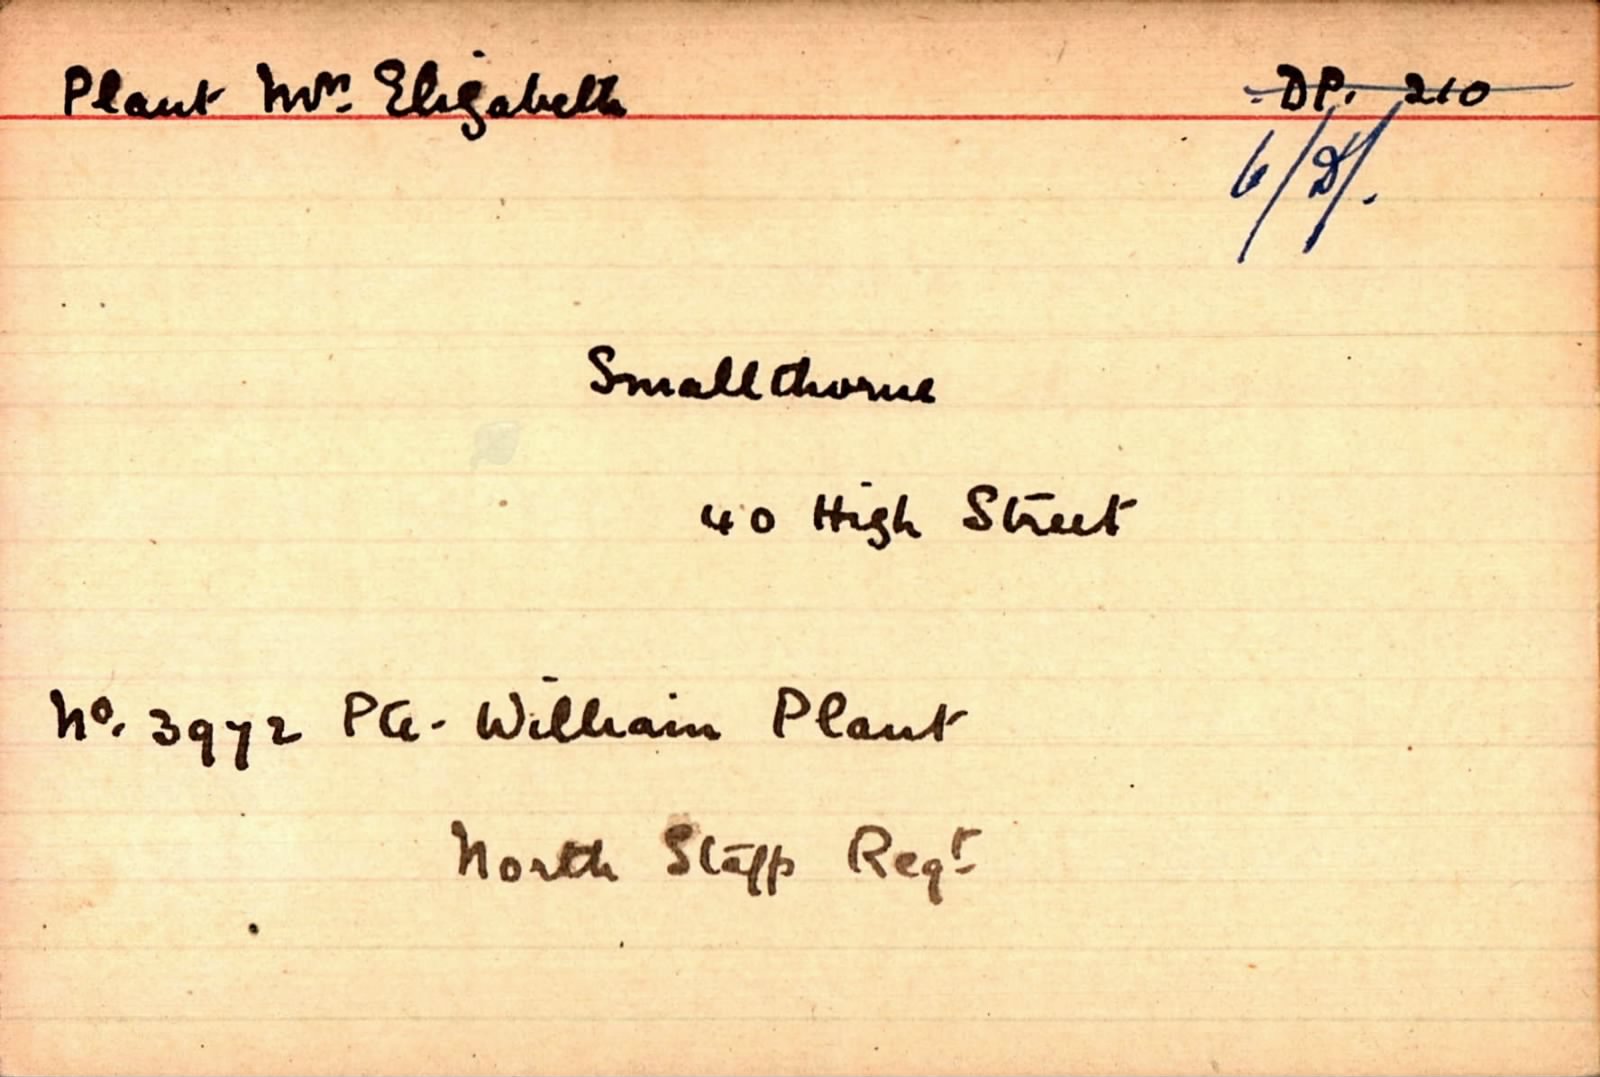 Plant Mrs. Elizabeth
D.P. 210
6/D/.
Smallthorne
40 High Street
No. 3972 Pte. William Plant
North Staff Regt